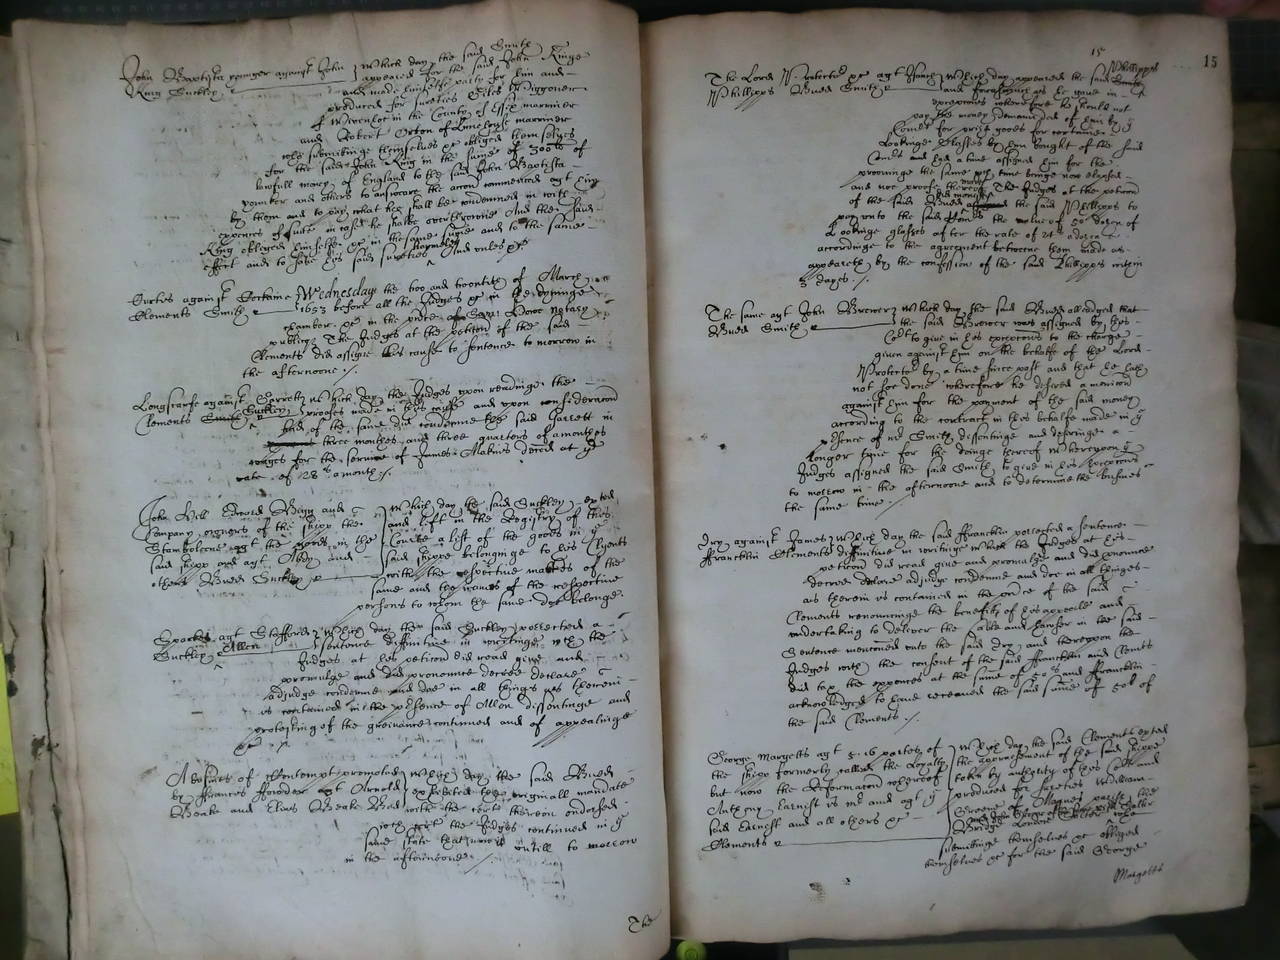 John Baptista younger against John
King Suckley
Which day the said Smith
appeared for the said John Kinge
and made himselfe party for him and
produced for sureties Giles Wiggoner
of Wivenhoe in the County of Essex marriner
and Robert Orton of Limehouse marriner
who submitinge themselves &c obliged themselves
for the said John King in the summe of 300li of
lawfull money of England to the said John Baptista
younger and others to answeare the accon commenced agt him
by them and to pay what hee shall be condemned in with
expences of suite in case he shalbe overthrowne And the said
King obleiged himselfe &c in the same summe and to the same
effect and to save his said sureties harmeles And unles &c
Curtes against Certaine
Clements Smith
Wednesday the two and twentith of March
1653 before all the Judges &c in the dyninge
chamber &c in the pnce of Notary
publique The Judges at the petition of the said
Clements did assigne this cause to sentence to morrow in
the afternoone ./.
Longstaffe against Garrett
Clements Smith Suckley
Which day the Judges upon readinge the
proofes made in this cause and upon consideracon
had of the same did condemne the said Garrett in
three monthes and three quarters of a monthes
wages for the service of James Makins dected at ye
rate of 28s a month ./.
John Bell Edward Bagg and
Company owners of the shipp the
agt the goods in the
said shipp and agt and
others Budd Suckley
Which day the said Suckley exted
and left in the Registry of this
Courte a list of the goods in ye
said shippe belonginge to his Clyents
with the respective markes of the
same and the names of the respective
persons to whom the same doe belonge
Sparkes agt Stafford
Suckley Allen
Which day the said Suckley porrected a
sentence diffinitive in writinge wch the
Judges at his peticon did read give and
promulge and did pronounce decree declare
adjudge condemne and doe in all things as therein
is conteined in the pñsence of Allen dissentinge and
protesting of the greivance continued and of appealinge
&c ./.
A busines of Contempt promoted
by Frances ffowder agt Arnold
Beake and Elias Beake Budd
Which day the said Budd
exhibited the originall mandate
with the certe thereon endorsed
wch cert the Judges continued in ye
same state that now is untill to morrow
in the afternoone ./.
The
15
15
The Lord Protector &c agt
Phillipps Budd Smith
Which day appeared the said Phillipps
and forasmuch as he gave in
excepcons wherefore he should not
pay the money demanded of him by ye
Comrs for prize goods for certaine
Lookinge Glasses by him bought of the said
Comrs and had a time assigned him for the
prooving the same wch time beinge now elapsed
and not proofe thereof made The Judges at the peticon
of the said Budd the said Phillipps to
pay unto the said Comrs the value of 50 dozen of
Lookinge glasses after the rate of a dozen
accordinge to the agreement betweene them made as
appeareth by the confession of the said Phillipps within
3 dayes ./.
The same agt John Brewer
Budd Smith
Which day the said Budd alledged that
the said Brewer was assigned by this
Cort to give in his excepcons to the charge
given against him on the behalfe of the Lord
Protector by a time since past and that he hath
not soe done wherefore he desired a monicon
against him for the payment of the said money
according to the contract in this behalfe made in ye
pñsence of mr Smith dissentinge and desiringe a
longer tyme for the doinge thereof Whereupon ye
Judges assigned the said Smith to give in his excepcons
to morrow in the afternoone and to determine the busines
the same time ./.
against James
ffrancklin Clements
Which day the said ffrancklin porrected a sentence
diffinitive in writinge which the Judges at his
peticon did read give and promulge and did pronounce
decree declare adjudge condemne and doe in all thinges
as therein is contained in the pnce of the said
Clements renouncinge the benefitt of his appeale and
undertaking to deliver the cable and hauser in the said
Sentence mentioned unto the said and thereupon the
Judges with the consent of the said ffrancklin and Clements
did tax the expences at the summe of 50s and ffrancklin
acknowledged to have receaved the said summe of 50s of
the said Clements ./.
George Margetts agt 5. 16 partes of
the shipp formerly called the Loyalty
but now the Reformation whereof
Anthony Earnest is mr and agt ye
said Earnest and all others &c
Clements
Which day the said Clements exted
the appraisement of the said shippe
taken by authority of this Cort and
produced for sureties William
Greene of Magnes parish
Bridge London
submitinge themselves &c obliged
themselves &c for the said George
Margetts